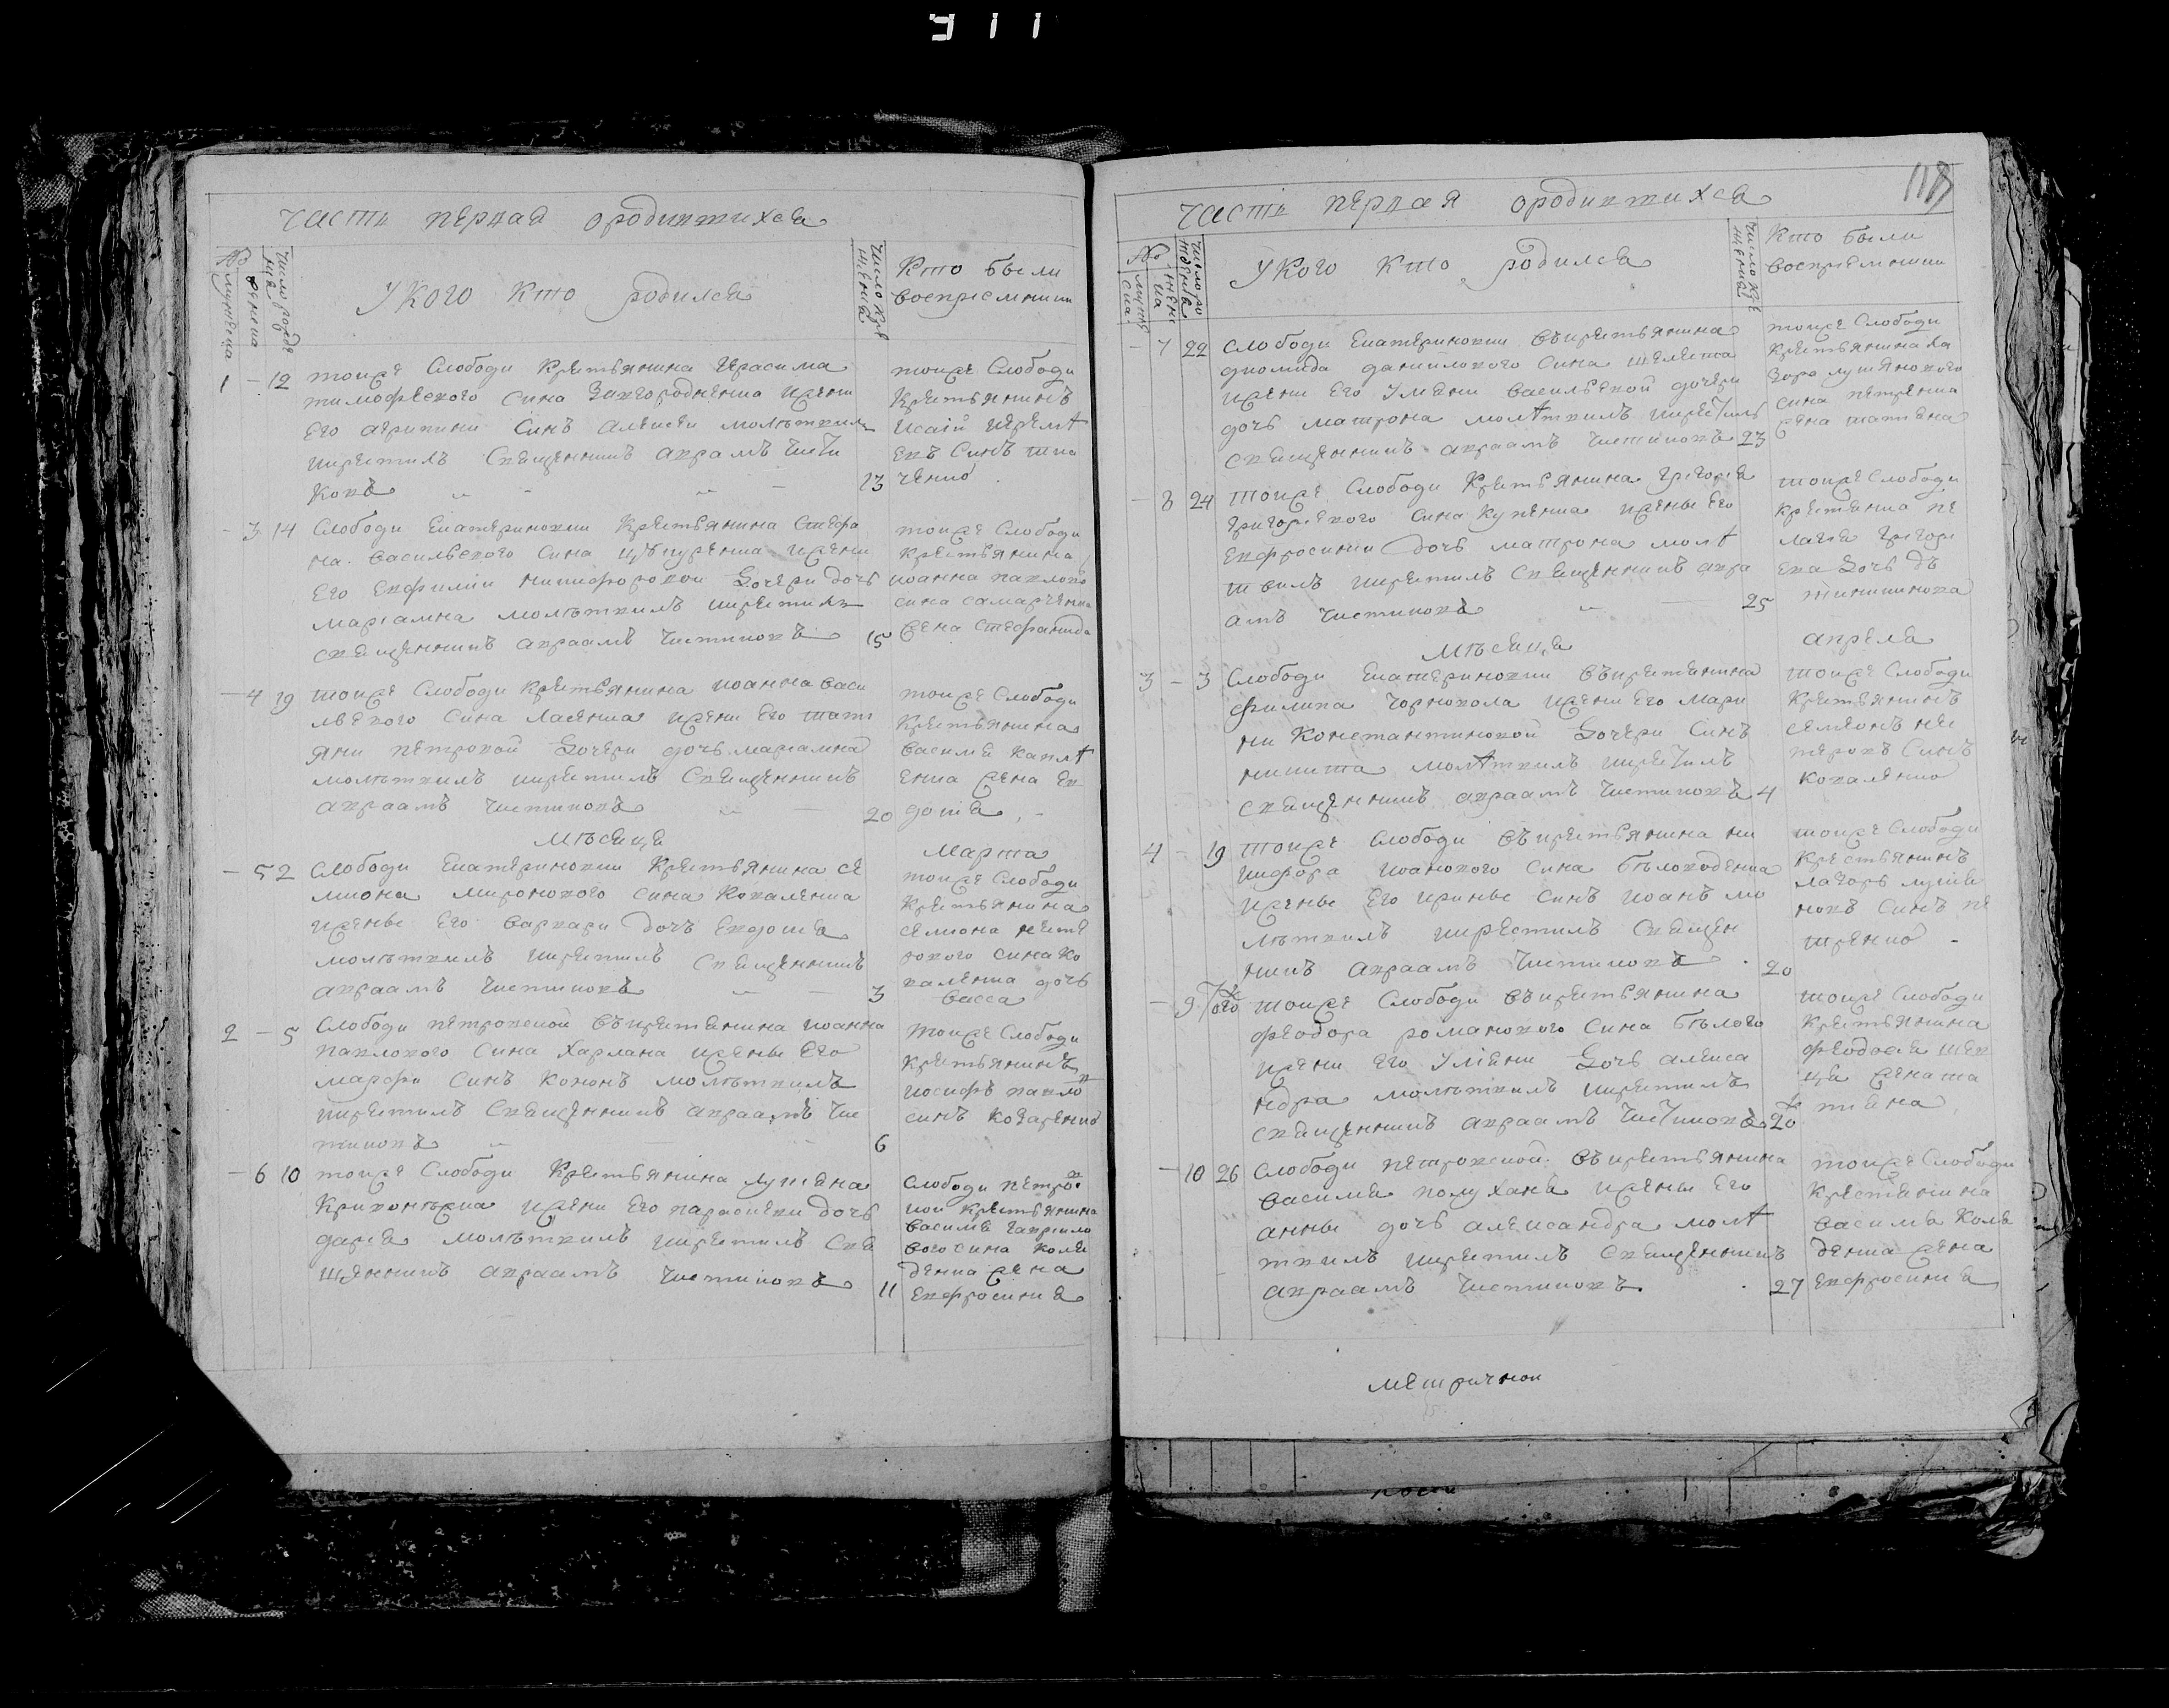 911
Часть первая ородившихся
№
мужеска
женска
Число рожде
ния
Укого кто родился
Число кре
щения
Кто были
восприемники
1 - 12 тоиже Слободи Крестьянина Герасима
тимофеевого Сина Завгородненка жени
Его агрипини Синъ алексеи молитвил
икрестилъ Священникъ аврамъ Чисти
ковъ 13
тоиже Слободи
Крестьянинъ
Исаiи
Евъ Синъ тка
ченко
- 3 14 Слободи Екатериновки Крестьянина Стефа
на васильевого Сина жени
Его Евфимiи никифоровои Дочери дочь
марiамна молитвилъ икрестилъ
священникъ авраамъ Чистиковъ 15
тоиже Слободи
Крестьянина
иоанна павлово
сина самарченка
жена стефанида
- 4 19 тоиже Слободи Крестьянина иоанна васи
льевого Сина Ласенка жени Его тати
яни петровои Дочери дочь марiамна
молитвилъ икрестилъ Священникъ
авраамъ Чистиковъ 20
тоиже Слободи
Крестьянина
василя
енка жена Ев
докiя
Месяца Марта
- 5 2 Слободи Екатериновки Крестьянина се
миона миронового сина Коваленка
женье Его варвари Дочъ Евдокiя
молитвилъ икрестилъ Священникъ
авраамъ Чистиковъ 3
тоиже Слободи
Крестьянина
семиона несте
рового сина Ко
валенка дочь
васса
2 - 5 Слободи петровской въкрестянина иоанна
павлового Сина Харлана жены Его
марфи Синъ Кононъ молитвилъ
икрестилъ Священникъ авраамъ Чис
тиковъ 6
тоиже Слободи
Крестьянинъ
иосифъ павло
въ
синъ Козаренко
- 6 10 тоиже Слободи Крестьянина лукiяна
жени Его параскеви дочь
дарiя молитвилъ икрестилъ Свя
щенникъ авраамъ Чистиковъ 11
Слободи петров
кои крестьянина
василя гаврило
вого сина коля
денка жена
Евфросиния
Часть первая ородившихся
№
мужеска
женска
Число рождения
Укого кто родился
Число кре
щения
Кто были
восприемники
- 7 22 Слободи Екатериновки въкрестьянина
диомида даниилового Сина
жени Его Улiяни васильевой дочери
дочь матрона молитвилъ икрестилъ
Священникъ авраамъ Чистиковъ 23
тоиже Слободи
Крестьянина ла
зора лукiянового
сина петренка
жена татiяна
- 8 24 тоиже Слободи Крестьянина Григорiя
Григорiевого Сина Куценка жены Его
Евфросинии Дочь матрона моли
твилъ икрестилъ Священникъ авра
амъ Чистиковъ 25
тоиже Слободи
крестянка пе
лагея Григори
Ева Дочь
Месяца апреля
3 - 3 Слободи Екатериновки въкрестянина
филипа Чорновола жени Его мари
ни Константиновои Дочери Синъ
никита молитвилъ икрестилъ
священникъ авраамъ Чистиковъ 4
тоиже Слободи
Крестьянинъ
семионъ нес
теровъ Синъ
Коваленко
4 - 19 тоиже Слободи въкрестьянина ни
кифора иоанового Сина
женье Его иринье Синъ иоанъ мо
литвилъ икрестилъ Священ
никъ авраамъ Чистиковъ 20
тоиже Слободи
Крестьянинъ
лазорь лукiя
новъ Синъ пе
тренко
- 9 тоиже Слободи въкрестьянина
феодора романового Сина белого
жени Его Улiяни Дочь алекса
ндра молитвилъ икрестилъ
священникъ авраамъ Чистиковъ 20
тоиже Слободи
Крестьянина
феодосия шев
ця жена та
тияна
- 10 26 Слободи петровской въкрестьянина
василя полухана жены Его
анны дочь александра моли
твилъ икрестилъ Священникъ
авраамъ Чистиковъ 27
тоиже Слободи
Крестянина
василя Коля
денка жена
Евфросиния
метричнои